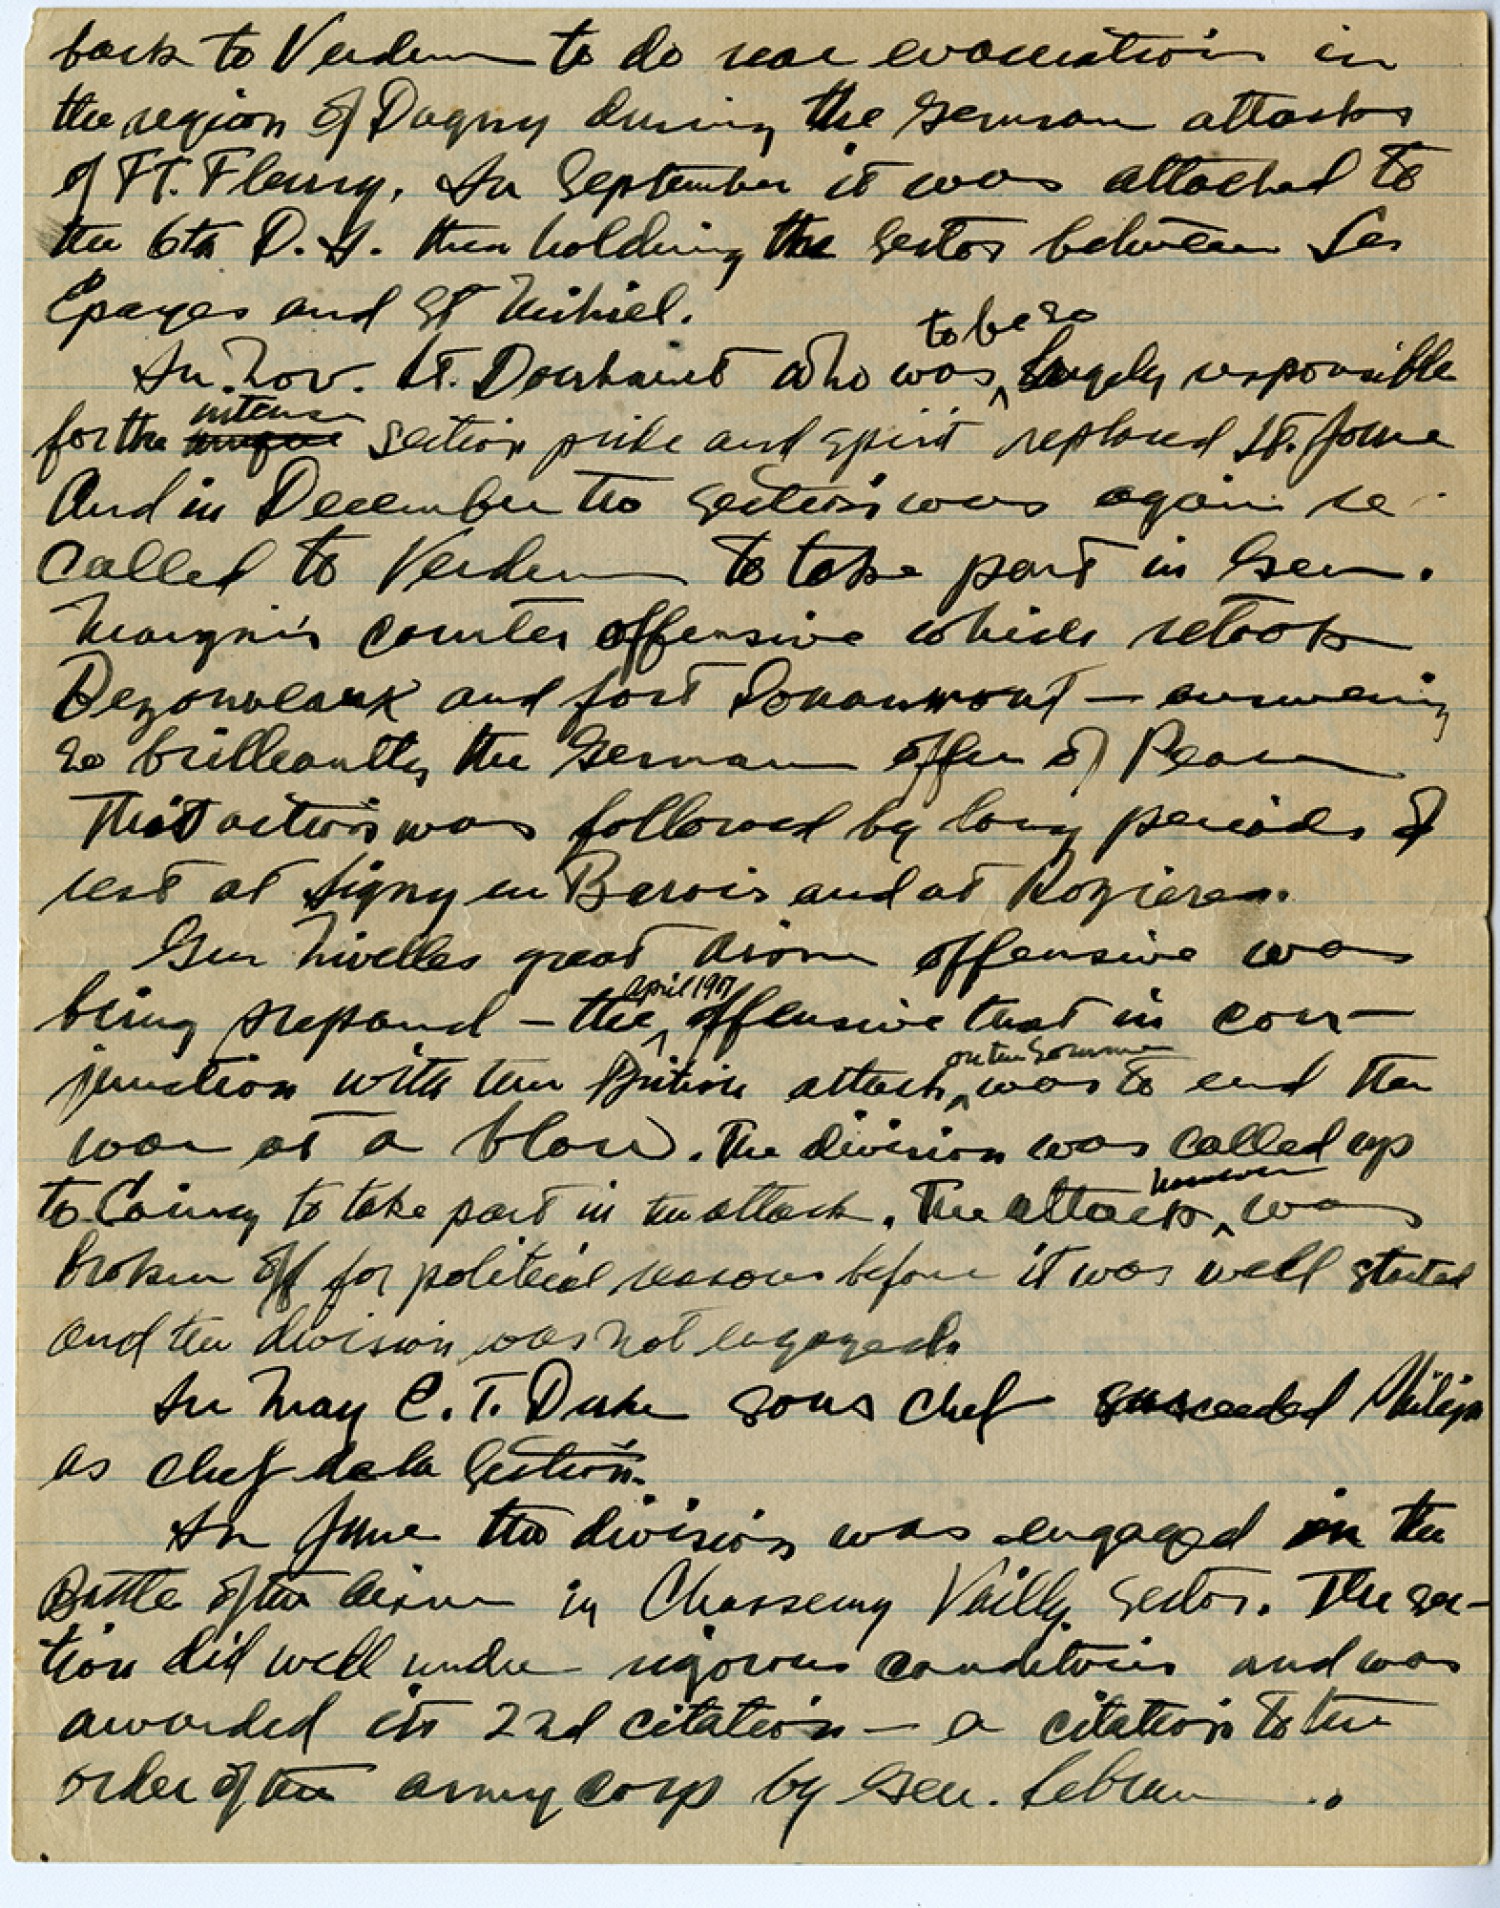 back to Verdun to do rear evacuation in
the region of Dugny during the German attacks
of Ft. Fleury. In September it was attached to
the 6th D.I. then holding the Sector between Les
Eparges and St Mihiel.
to be so
In Nov. Lt. who was largely responsible
intense
for the unique Section pride and spirit replaced Lt.
And in December the Section was again re-
called to Verdun to take part in Gen.
Mangin's counter offensive which retook
Bezonveaux and fort Douaumont — answering
so brilliantly the German offer of Peace
That action was followed by long periods of
rest at Ligny en Barrois and at Rozieres.
Gen Nivelles great Aisne offensive was
april 1917
being prepared — the offensive that in con-
on the Somme
junction with the British attack was to end the
war at a blow. The division was called up
however
to to take part in the attack. The attack was
broken off for political reasons before it was well started
and the division was not engaged.
In May C. T. Duke sous chef succeeded
as chef de la Section.
In June the division was engaged in the
Battle of the Aisne in Chassemy Vailly Sector. The sec-
tion did well under rigorous conditions and was
awarded its 2nd citation — a citation to the
order of the army corps by Gen. Lebrun .